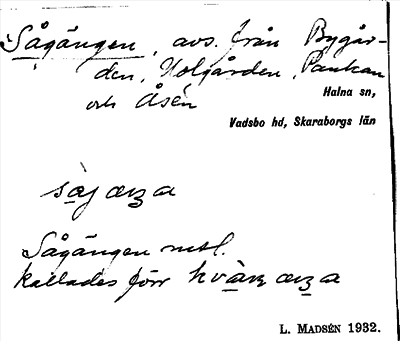 Sågängen, avs. från Bygår-
den, Holgården, Pankan
och Åsén
Halna sn,
Vadsbo hd, Skaraborgs län
Sågängen mtl.
kallades förr
L. MADSÉN 1932.